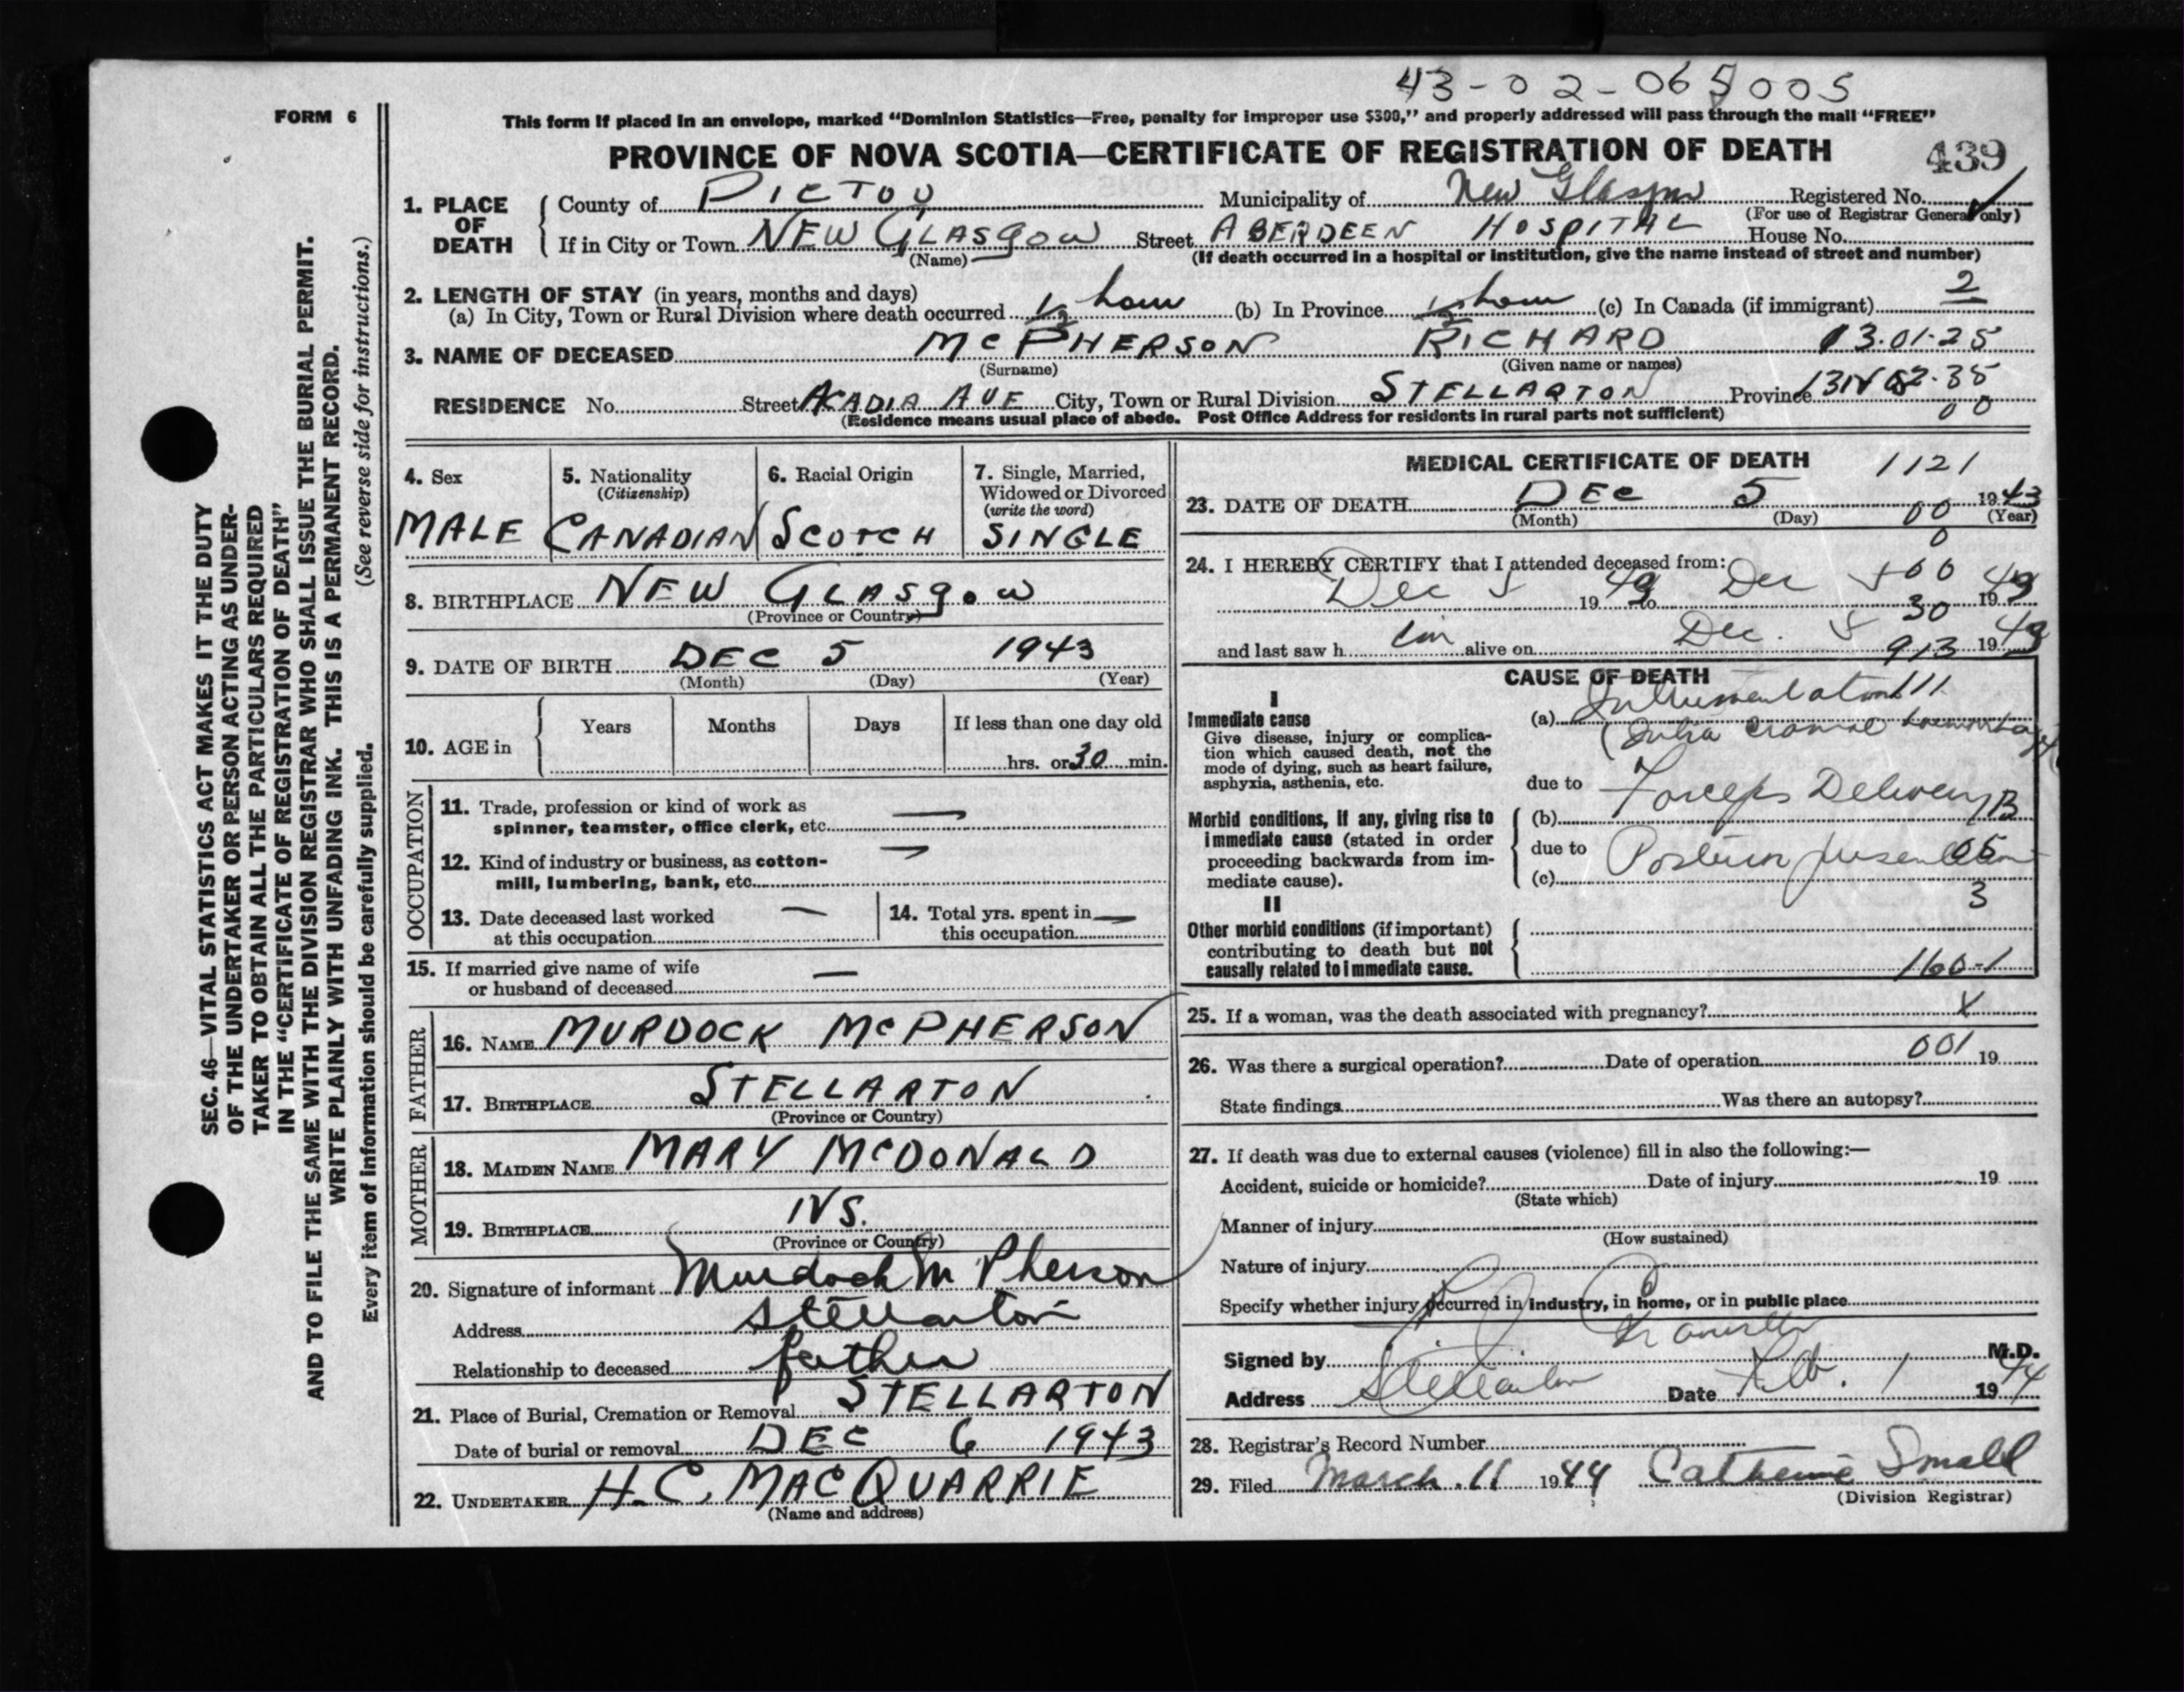 43-02-065005
FORM 6
This form if placed in an envelope, marked "Dominion Statistics—Free, penalty for improper use $300," and properly addressed will pass through the mail "FREE"
PROVINCE OF NOVA SCOTIA—CERTIFICATE OF REGISTRATION OF DEATH 439
1. PLACE OF DEATH
County of PICTOU Municipality of New Glasgow Registered No.
(For use of Registrar General only)
If in City or Town NEW GLASGOW Street ABERDEEN HOSPITAL House No.
(Name) (If death occurred in a hospital or institution, give the name instead of street and number)
2. LENGTH OF STAY (in years, months and days)
(a) In City, Town or Rural Division where death occurred 1/2 hour (b) In Province 1/2 hour (c) In Canada (if immigrant) 2
3. NAME OF DECEASED McPHERSON RICHARD 13.01.25
(Surname) (Given name or names)
RESIDENCE No. Street ACADIA AVE City, Town or Rural Division STELLARTON Province
00
(Residence means usual place of abode. Post Office Address for residents in rural parts not sufficient)
4. Sex
MALE
5. Nationality
(Citizenship)
CANADIAN
6. Racial Origin
SCOTCH
7. Single, Married,
Widowed or Divorced
(write the word)
SINGLE
8. BIRTHPLACE NEW GLASGOW
(Province or Country)
9. DATE OF BIRTH DEC 5 1943
(Month) (Day) (Year)
10. AGE in Years Months Days If less than one day old
hrs. or 30 min.
OCCUPATION
11. Trade, profession or kind of work as
spinner, teamster, office clerk, etc. —
12. Kind of industry or business, as cotton-
mill, lumbering, bank, etc. —
13. Date deceased last worked
at this occupation —
14. Total yrs. spent in
this occupation —
15. If married give name of wife
or husband of deceased —
FATHER
16. NAME MURDOCK McPHERSON
17. BIRTHPLACE STELLARTON
(Province or Country)
MOTHER
18. MAIDEN NAME MARY McDONALD
19. BIRTHPLACE NS.
(Province or Country)
20. Signature of informant Murdoch McPherson
Address Stellarton
Relationship to deceased father
21. Place of Burial, Cremation or Removal STELLARTON
Date of burial or removal DEC 6 1943
22. UNDERTAKER H. C. MACQUARRIE
(Name and address)
MEDICAL CERTIFICATE OF DEATH 1121
23. DATE OF DEATH DEC 5 1943
(Month) (Day) 00 (Year)
0
24. I HEREBY CERTIFY that I attended deceased from:
00
Dec 5 1943 to Dec 5 1943
30
and last saw him alive on Dec. 5 1943
913
CAUSE OF DEATH
I
Immediate cause
Give disease, injury or complica-
tion which caused death, not the
mode of dying, such as heart failure,
asphyxia, asthenia, etc.
(a) Instrumentation 111
(Intra cranial haemorrhage)
due to
Morbid conditions, if any, giving rise to
immediate cause (stated in order
proceeding backwards from im-
mediate cause).
(b) Forceps Delivery B
due to
(c) Posterior presentation 05
3
II
Other morbid conditions (if important)
contributing to death but not
causally related to immediate cause.
160-1
25. If a woman, was the death associated with pregnancy? X
26. Was there a surgical operation? Date of operation 001 19
State findings Was there an autopsy?
27. If death was due to external causes (violence) fill in also the following:—
Accident, suicide or homicide? Date of injury 19
(State which)
Manner of injury
(How sustained)
Nature of injury
Specify whether injury occurred in industry, in home, or in public place
Signed by M.D.
Address Stellarton Date Feb. 1 1944
28. Registrar's Record Number
29. Filed March 11 1944 Catherine Small
(Division Registrar)
SEC. 46—VITAL STATISTICS ACT MAKES IT THE DUTY
OF THE UNDERTAKER OR PERSON ACTING AS UNDER-
TAKER TO OBTAIN ALL THE PARTICULARS REQUIRED
IN THE "CERTIFICATE OF REGISTRATION OF DEATH"
AND TO FILE THE SAME WITH THE DIVISION REGISTRAR WHO SHALL ISSUE THE BURIAL PERMIT.
WRITE PLAINLY WITH UNFADING INK. THIS IS A PERMANENT RECORD.
Every item of information should be carefully supplied. (See reverse side for instructions.)